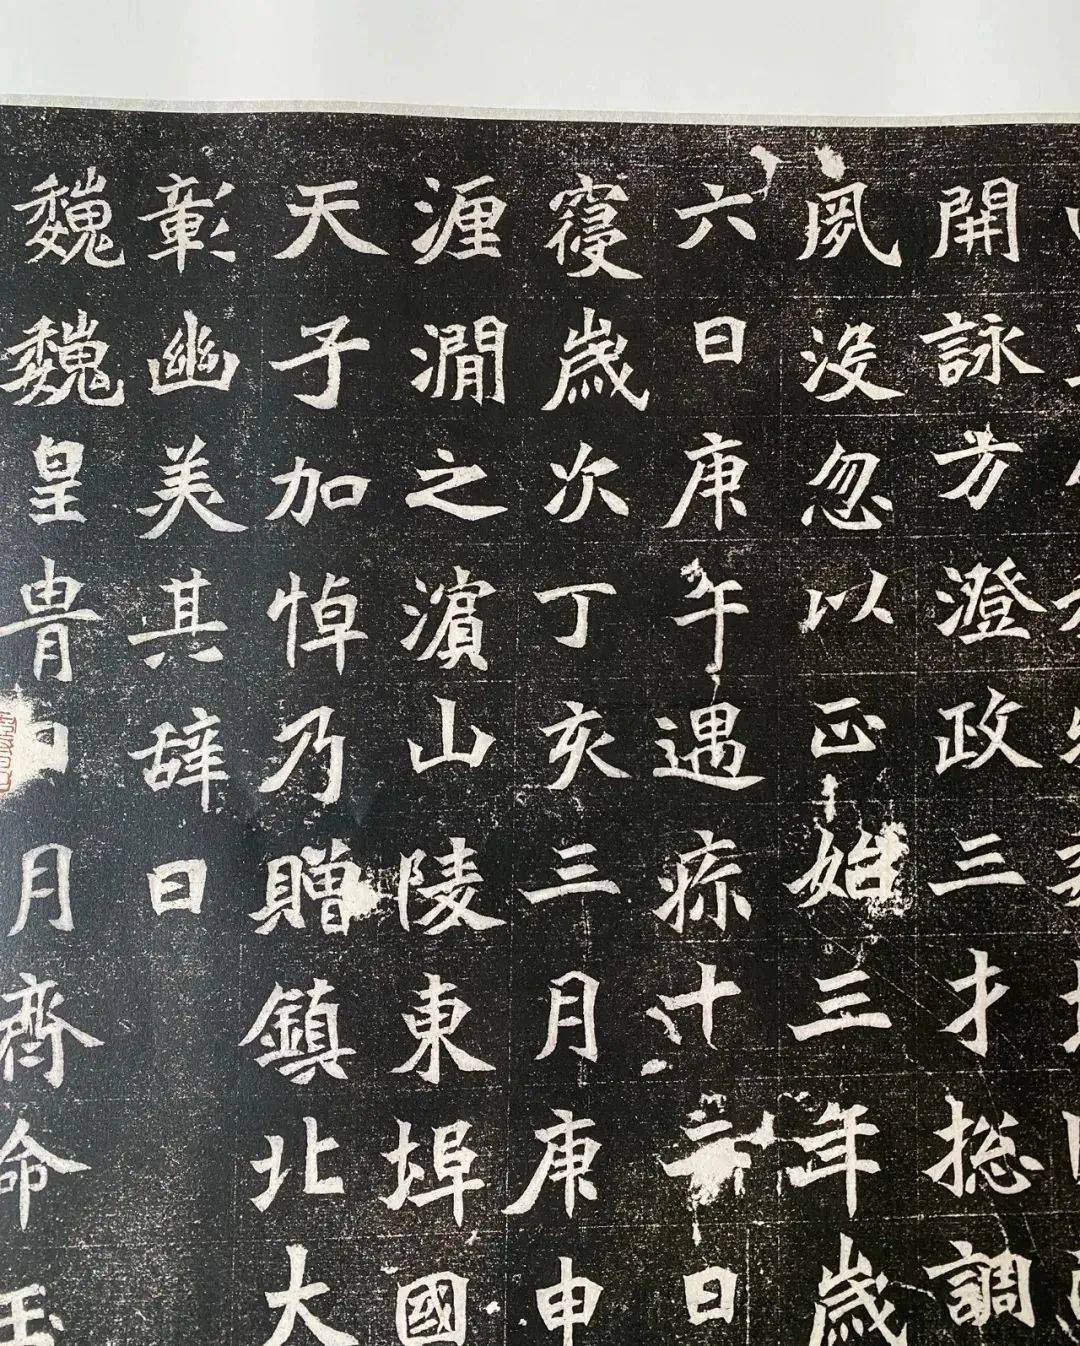 開詠方澄政三才揔調
夙没忽以正始三年歲
六日庚午遇疹十日
寑歲次丁亥三月庚申
瀍澗之濱山陵東埠國
天子加悼乃贈鎮北大
彰幽美其辭曰
魏魏皇胄月齊命